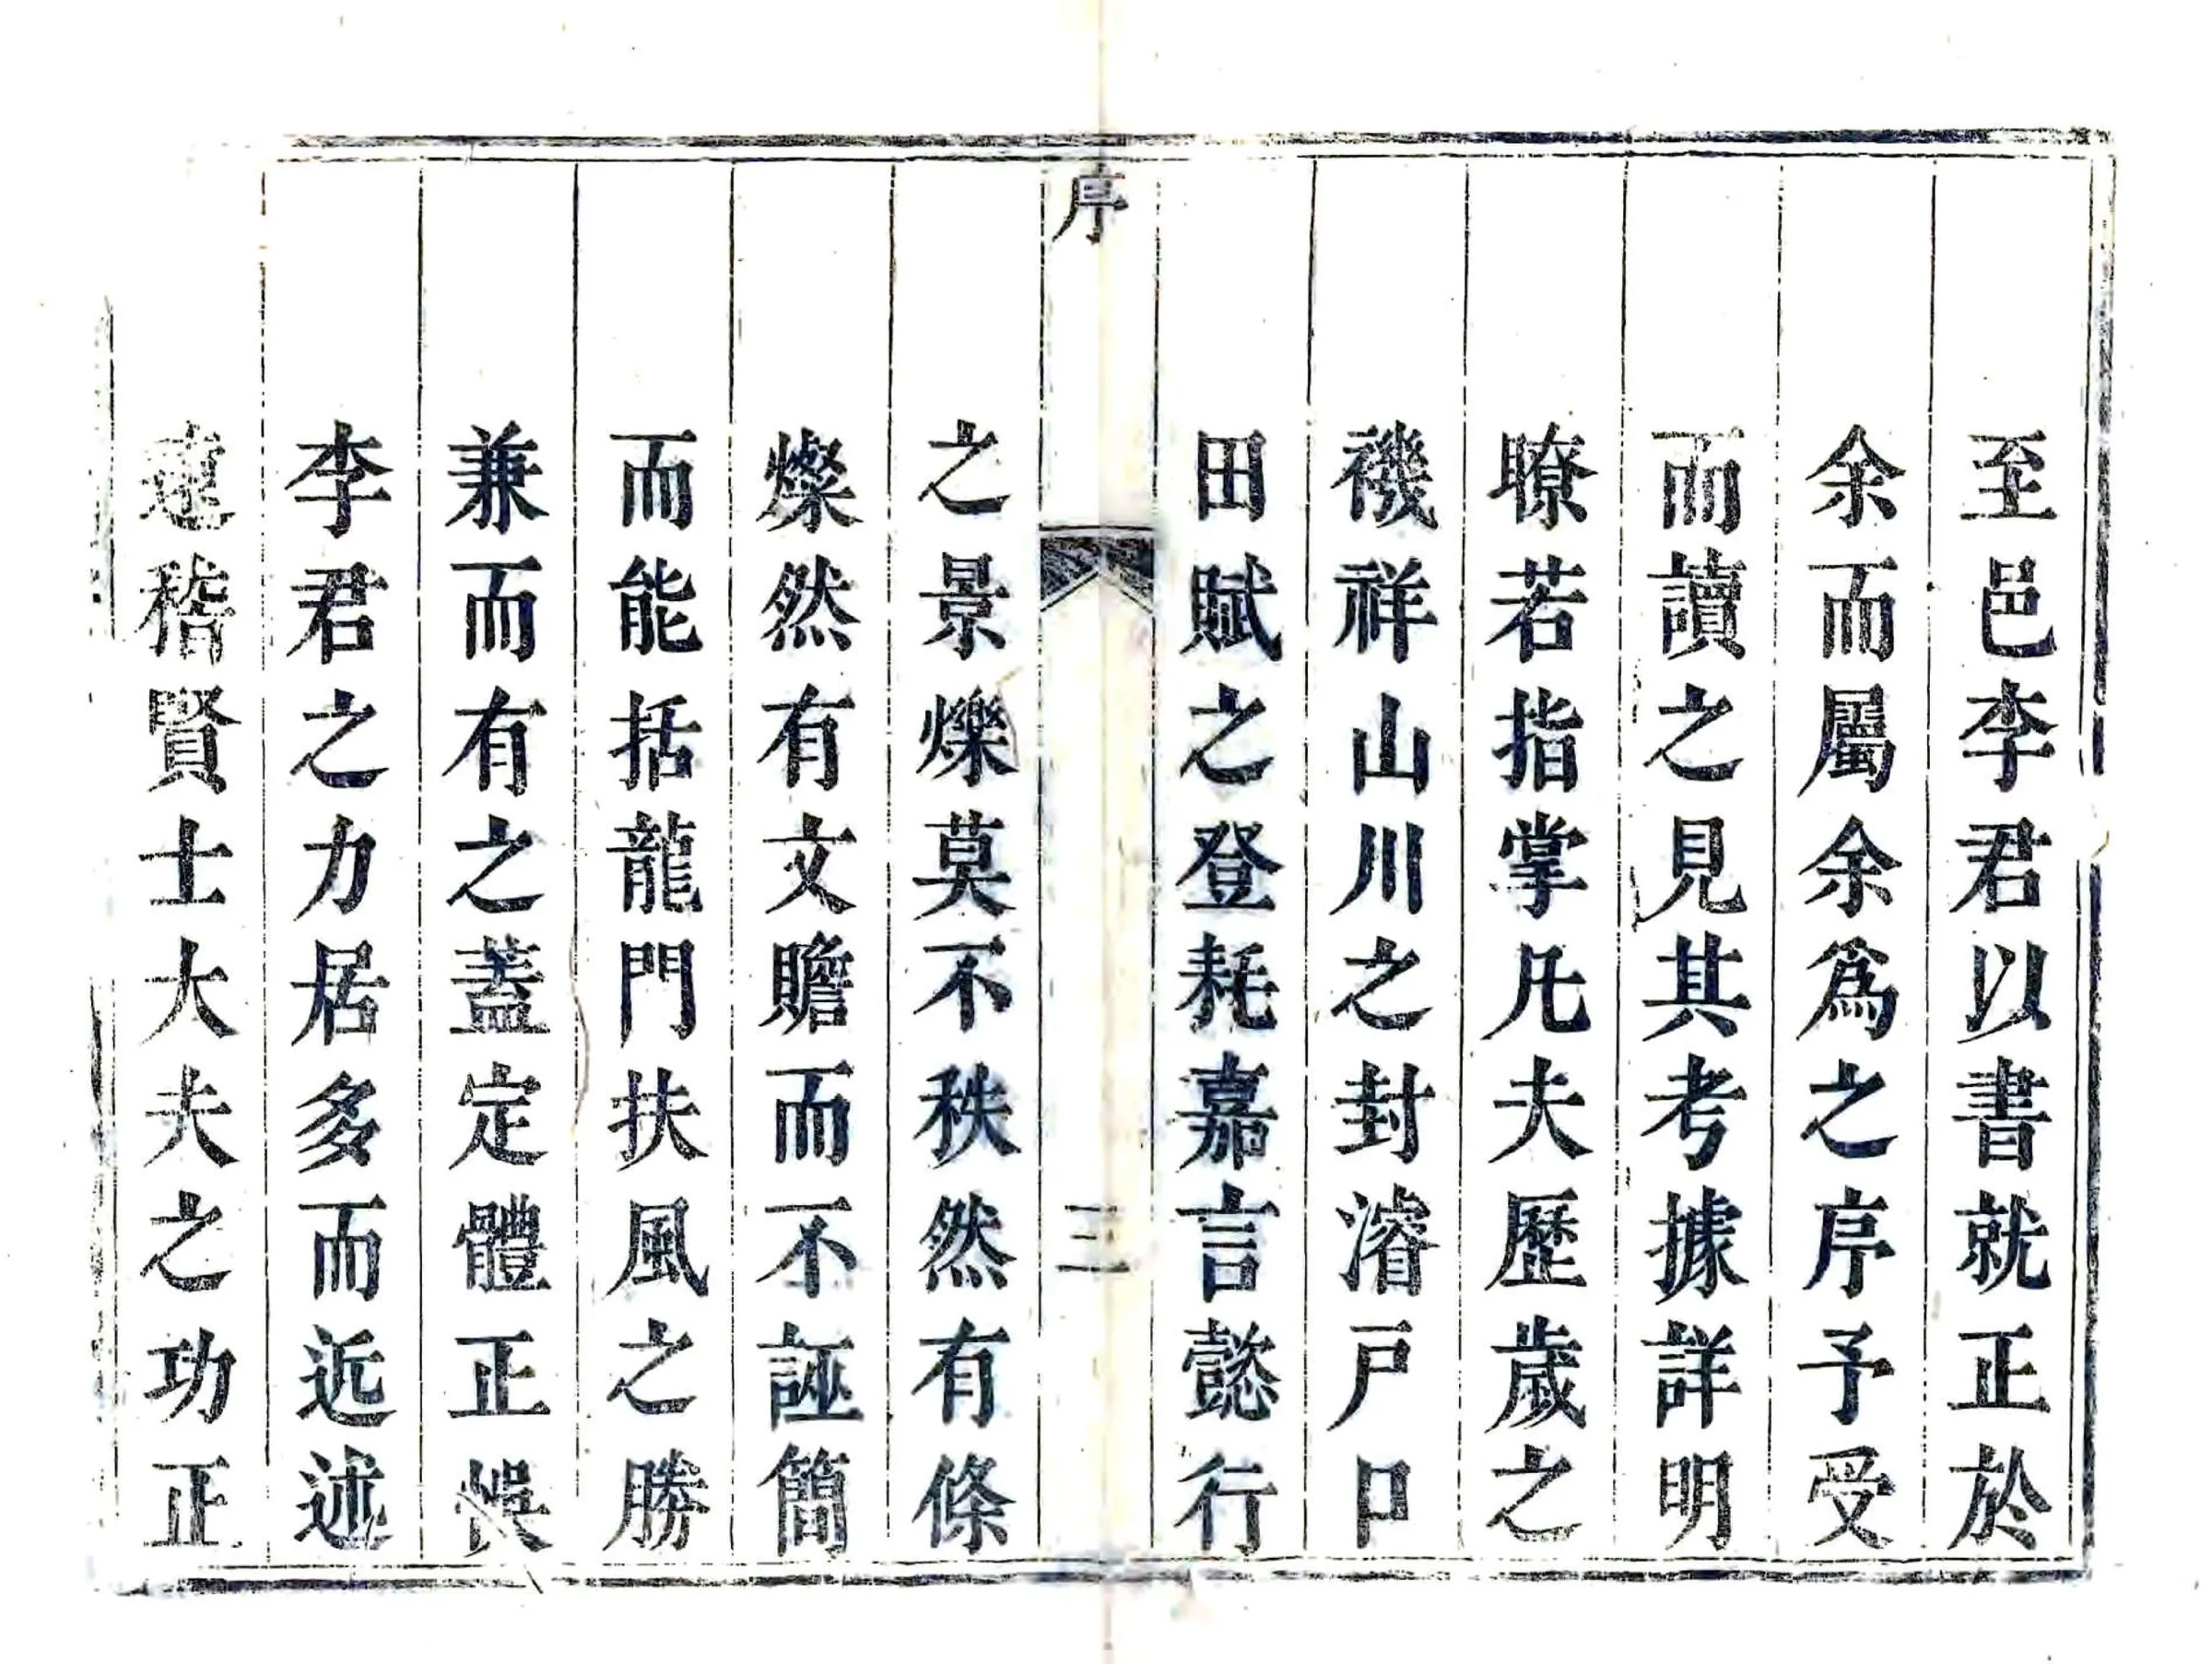 至邑李君以書就正於
余而屬余爲之序予受
而讀之見其考據詳明
暸若指掌凡夫歷歲之
禨祥山川之封濬戸口
田賦之登耗嘉言懿行
序
三
之景爍莫不秩然有條
燦然有文贍而不誣簡
而能括龍門扶風之勝
兼而有之蓋定體正悞
李君之力居多而近述
遠稽賢士大夫之功正